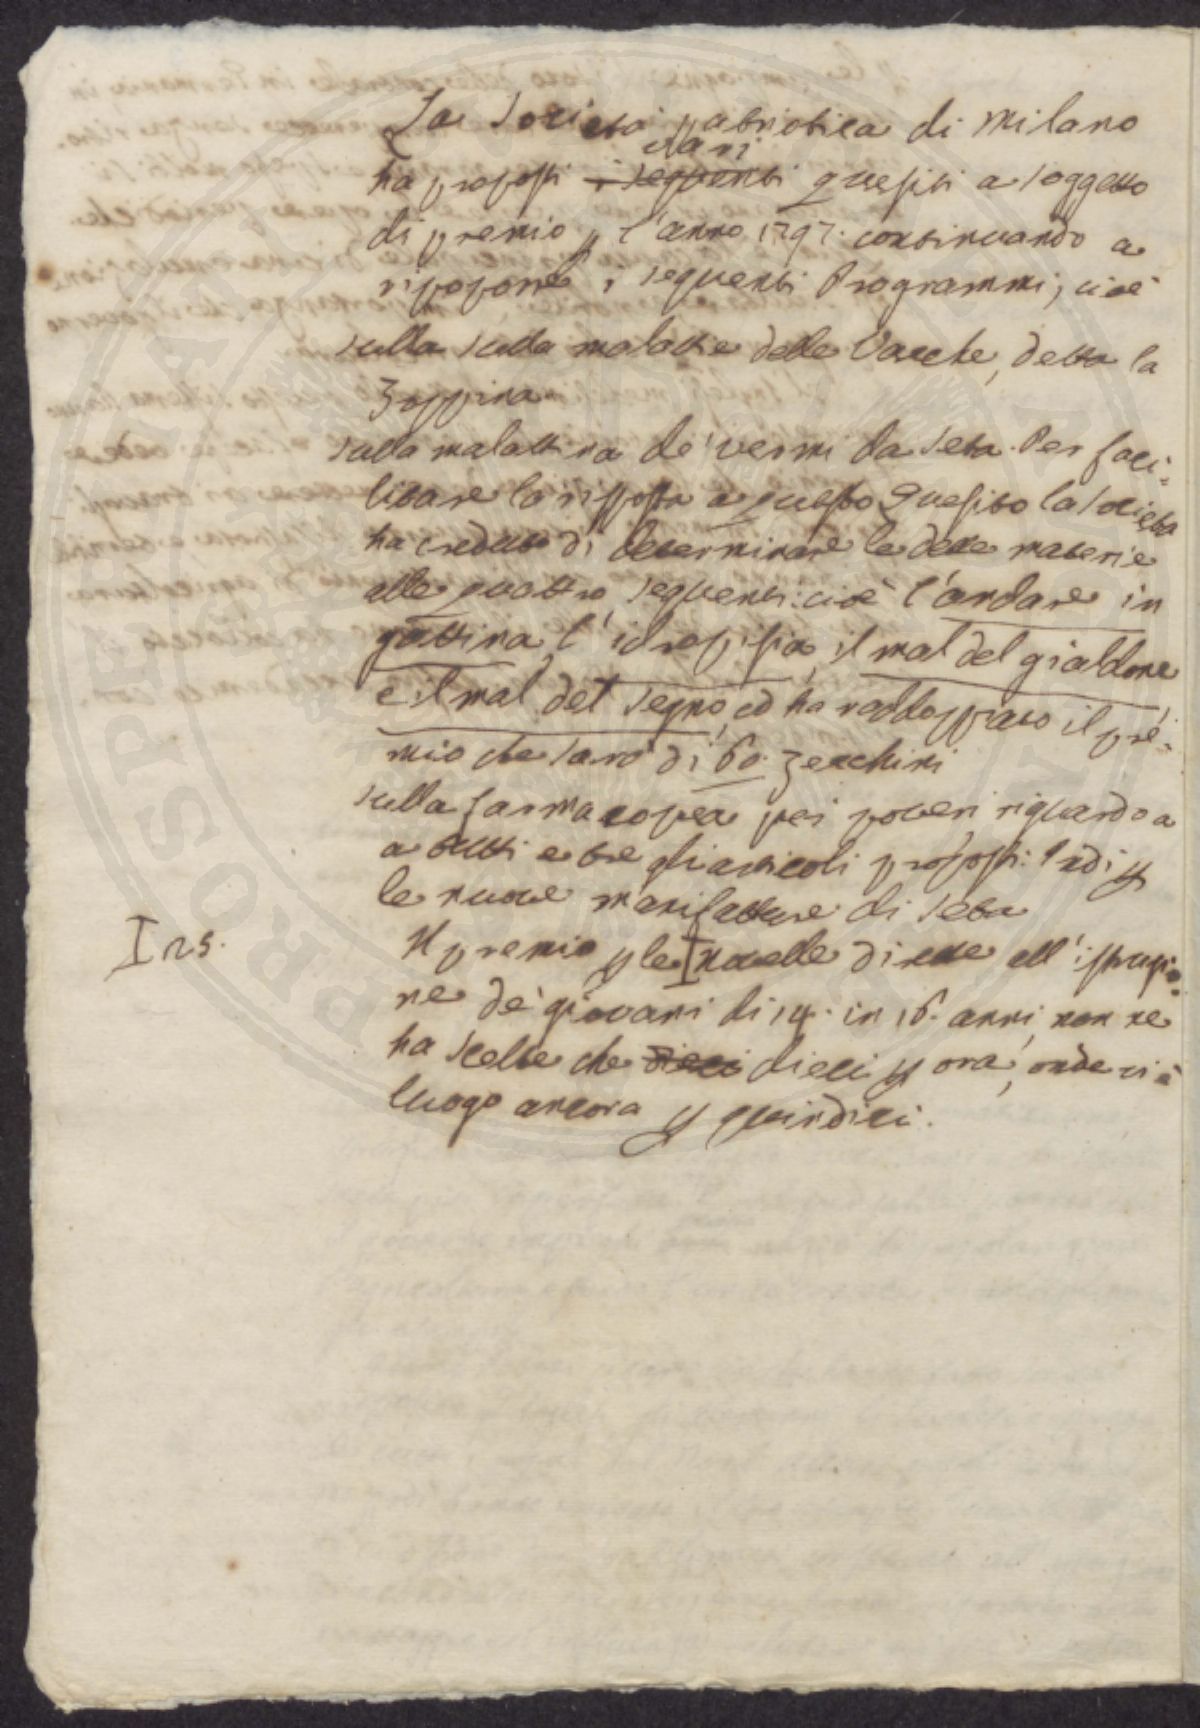 La Società patriotica di Milano
varj
ha proposti i seguenti quesiti a soggetto
di premio p l'anno 1797. continuando a
riproporre i seguenti Programmi, cioè
sulla sulla malattie delle Vacche, detta la
Zoppina
sulla malattina de' vermi da seta. Per faci-
litare la risposta a questo Quesito la Società
ha creduto di determinare le dette materie
alle quattro seguenti: cioè l'andare in
gattina, l'idropisia, il mal del giallone
e il mal del segno, ed ha raddoppiato il pre-
mio che sarà di 60. zecchini
sulla farmacopea pei poveri riguardo a
a tutti e tre gli articoli proposti. Indi p
le nuove manifatture di seta
I 25.
Il premio p le I novelle dirette all'istruzio-
ne de' giovani di 14. in 16. anni, non ne
ha scelte che dieci dieci p ora, onde ci è
luogo ancora p quindici.